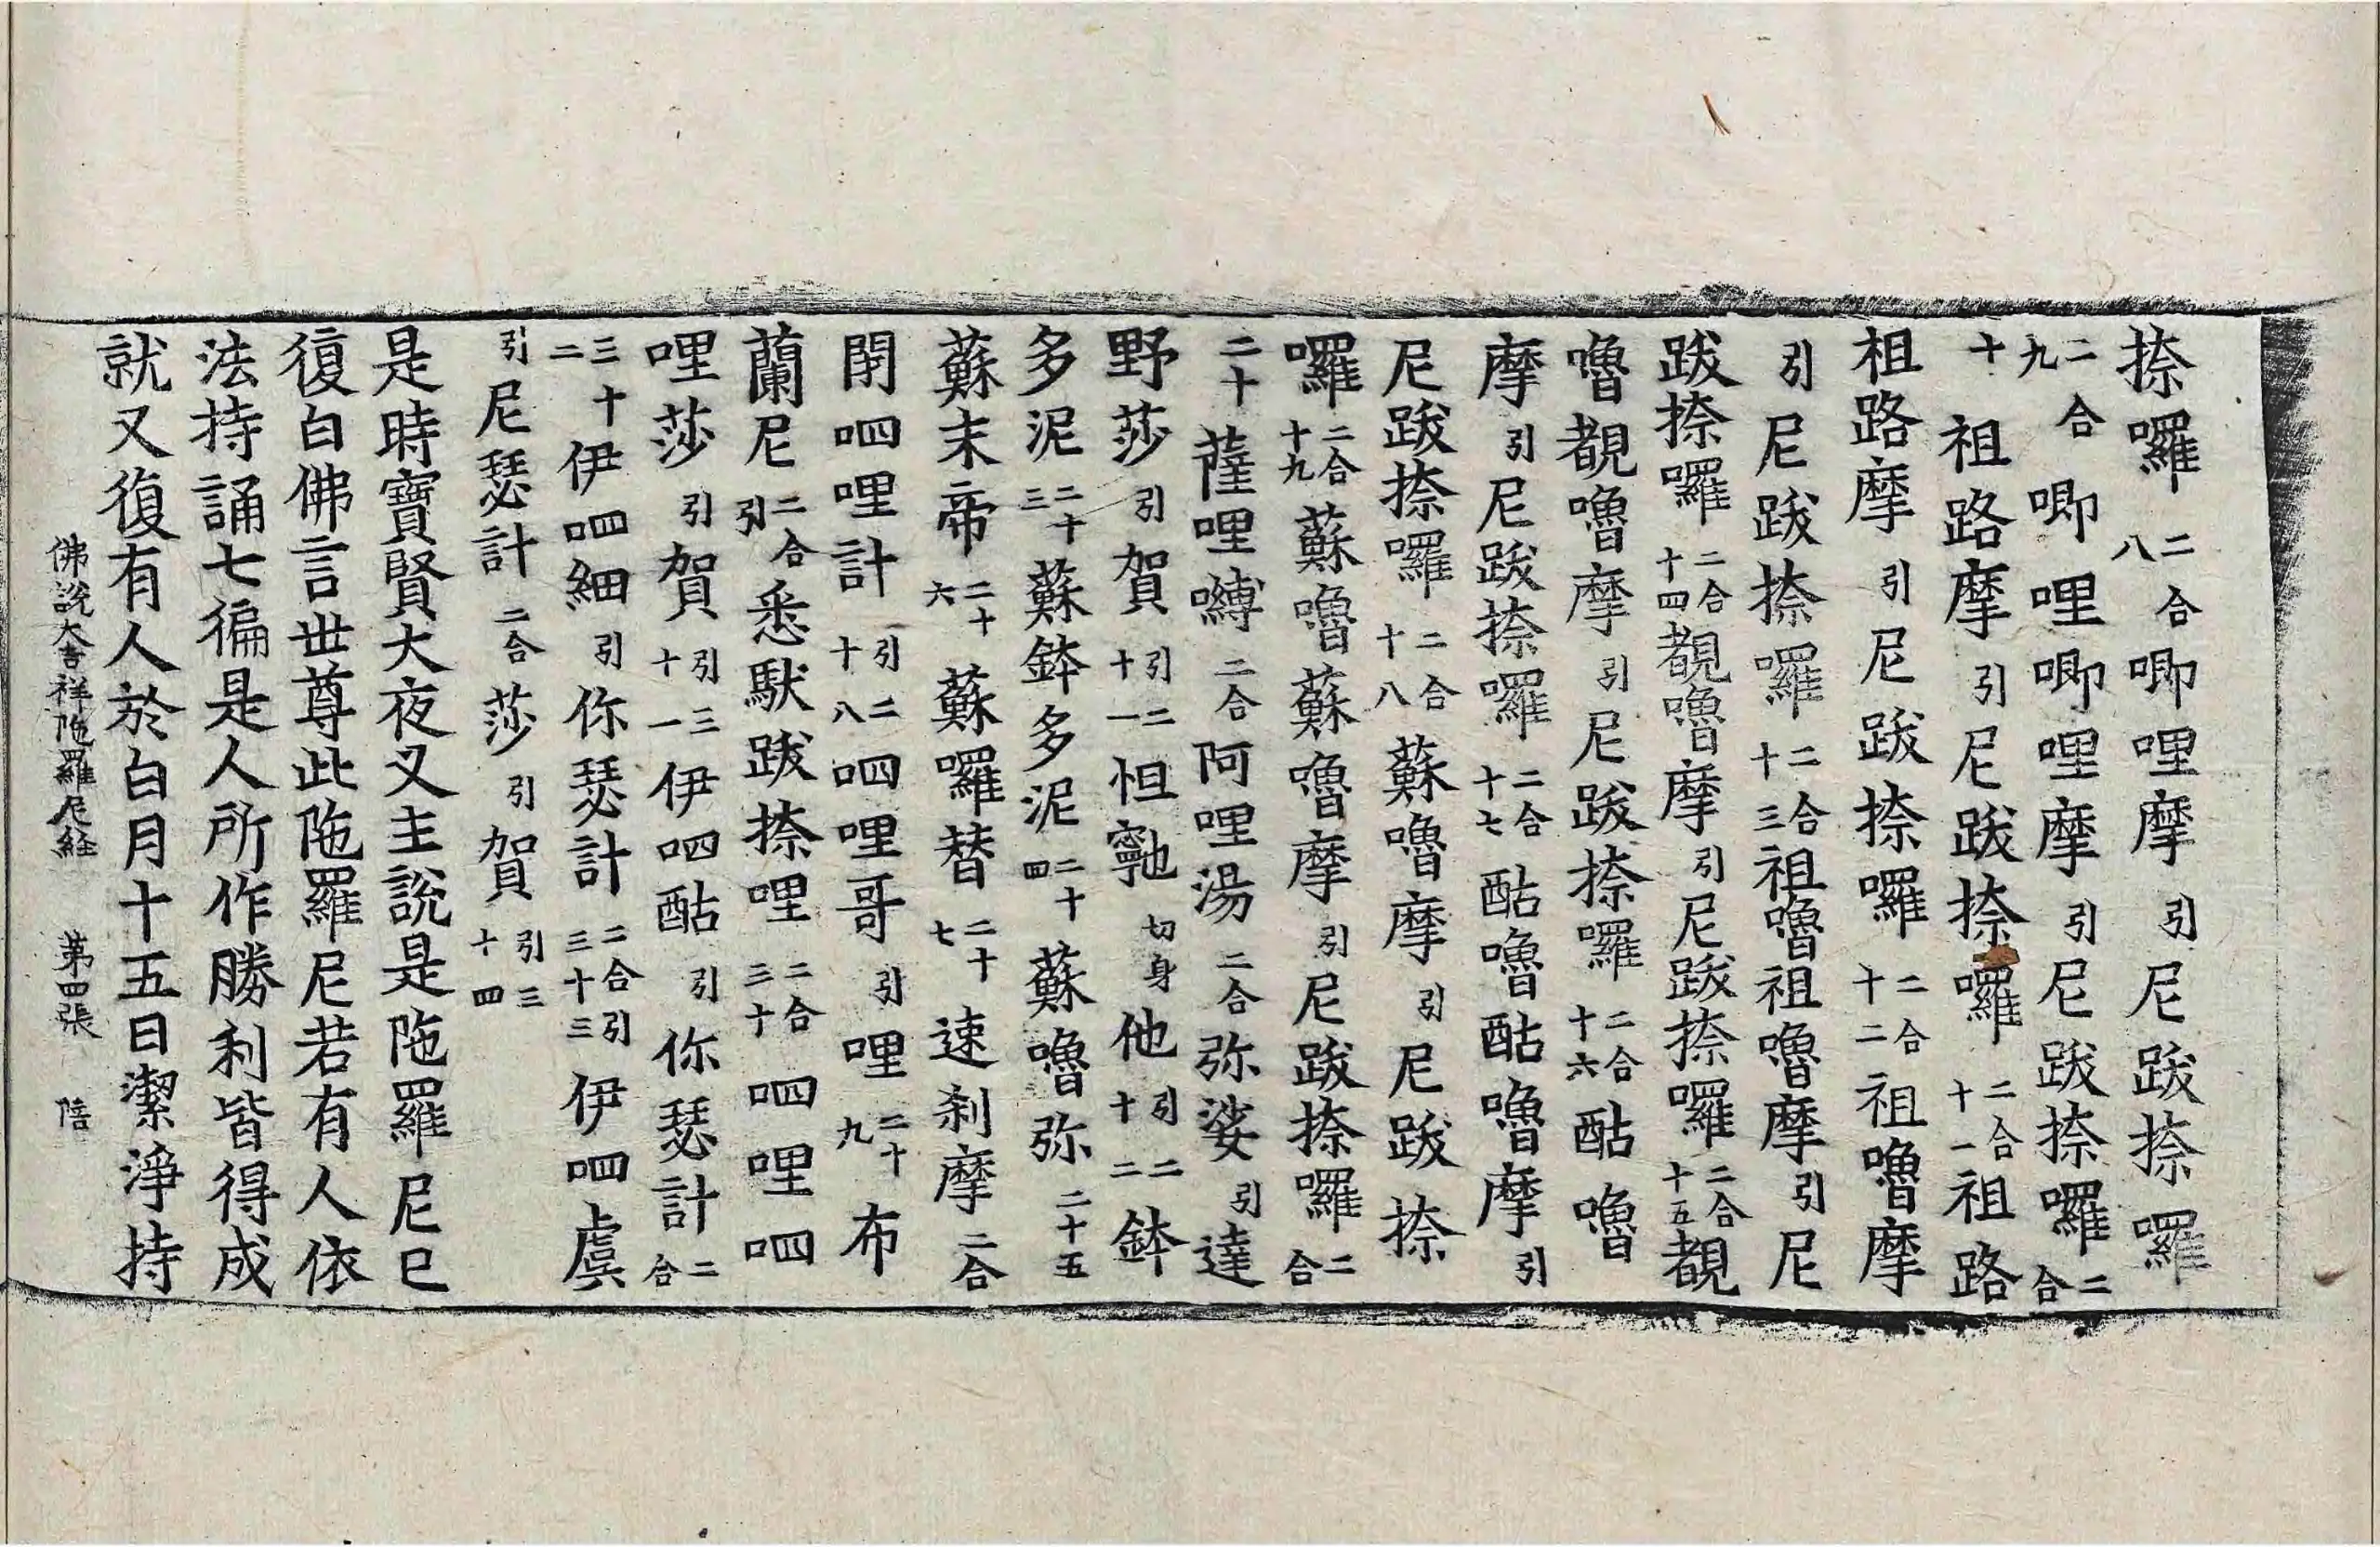 捺囉二合八唧哩摩引尼跋捺囉
二合九唧哩唧哩摩引尼跋捺囉二合
十祖路摩引尼跋捺囉二合十一祖路
祖路摩引尼跋捺囉二合十二祖嚕摩
引尼跋捺囉二合十三祖嚕祖嚕摩引尼
跋捺囉二合十四覩嚕摩引尼跋捺囉二合十五覩
嚕覩嚕摩引尼跋捺囉二合十六酤嚕
摩引尼跋捺囉二合十七酤嚕酤嚕摩引
尼跋捺囉二合十八蘇嚕摩引尼跋捺
囉二合十九蘇嚕蘇嚕摩引尼跋捺囉二合
二十薩哩嚩二合阿哩湯二合弥娑引達
野莎引賀引二十一怛𭌆切身他引二十二鉢
多泥二十三蘇鉢多泥二十四蘇嚕弥二十五
蘇末帝二十六蘇囉替二十七速刹摩二合
閉呬哩計引二十八呬哩哥引哩二十九布
蘭尼二合引悉馱跋捺哩二合三十呬哩呬
哩莎引賀引三十一伊呬酤引你瑟計二合
三十二伊呬細引你瑟計二合引三十三伊呬虞
引尼瑟計二合莎引賀引三十四
是時寶賢大夜叉主說是陁羅尼已
復白佛言世尊此陁羅尼若有人依
法持誦七徧是人所作勝利皆得成
就又復有人於白月十五日潔淨持
佛說大吉祥陁羅尼経 第四張 陪